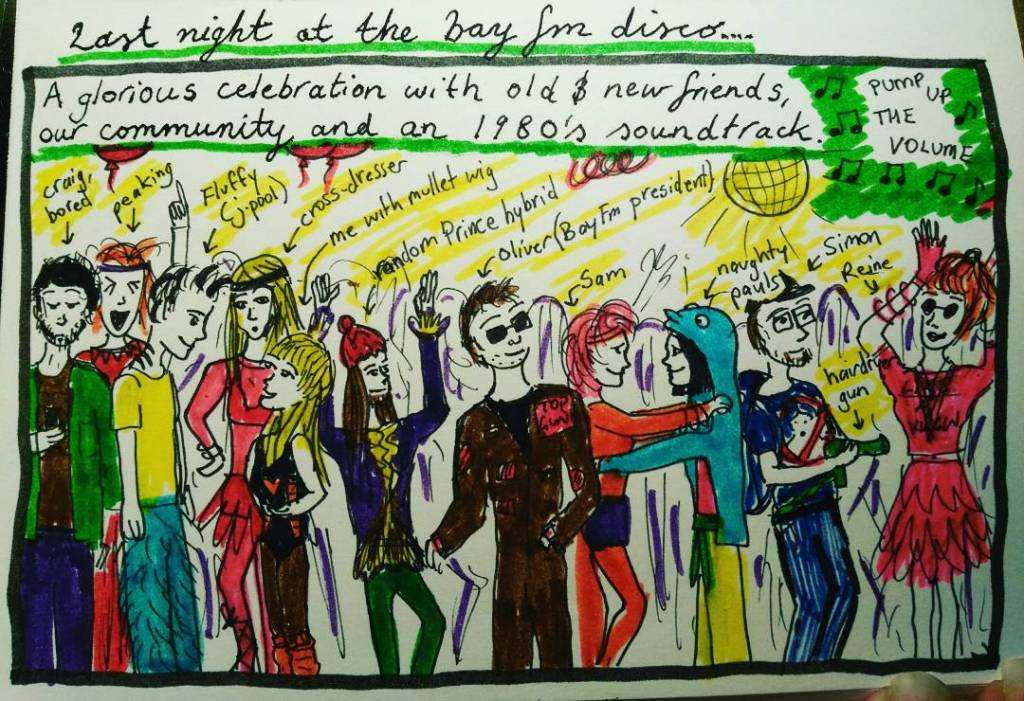 Last night at the bay fm disco....
A glorious celebration with old & new friends,
our community and an 1980's soundtrack.
PUMP UP
THE
VOLUME
craig,
bored
peaking
Fluffy
(j-pool)
cross-dresser
me with mullet wig
random Prince hybrid
Oliver (Bay Fm president)
Sam
naughty
pauls
Simon
Reine
hairdryer
gun
TOP
GUN